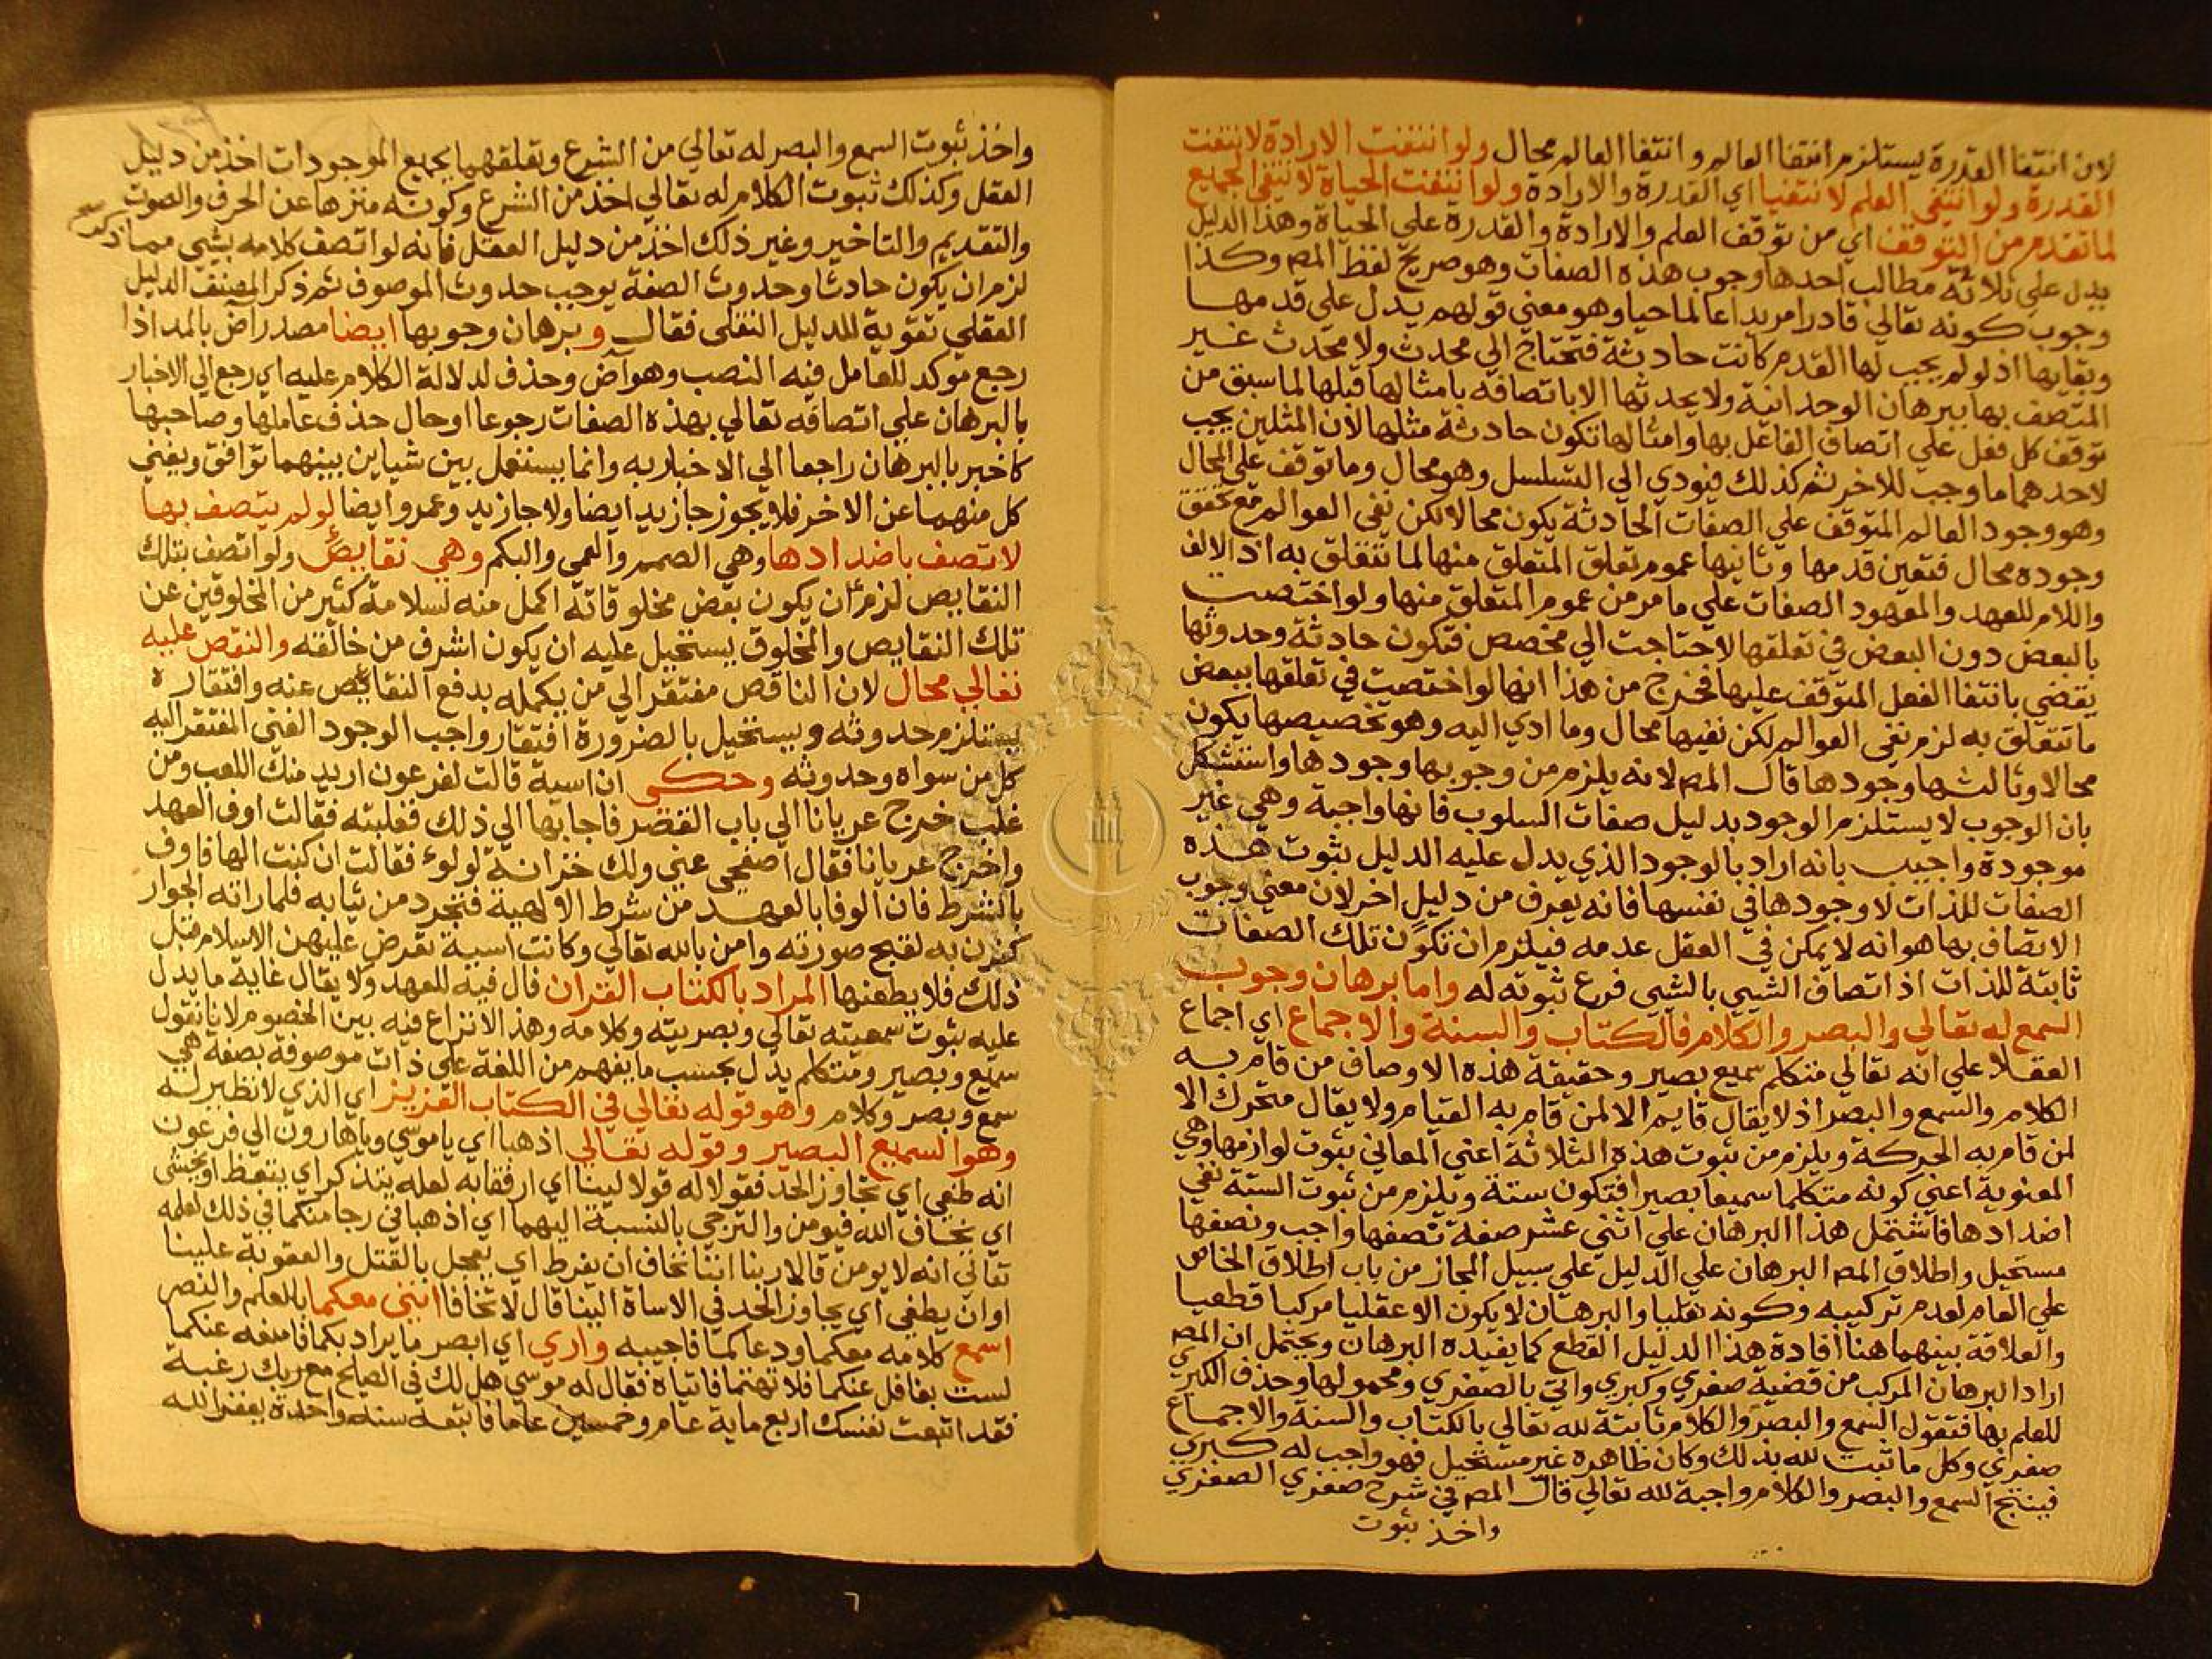 لان انتفا القدرة يستلزم انتفا العالم وانتفا العالم محال ولو انتفت الارادة لانتفت
القدرة ولو انتفي العلم لانتفيا اي القدرة والارادة ولو انتفت الحياة لانتفي الجميع
لما تقدم من التوقف اي من توقف العلم والارادة والقدرة علي الحياة وهذا الدليل
يدل علي ثلاثة مطالب احدها وجوب هذه الصفات وهو صريح لفظ المص وكذا
وجوب كونه تعالي قادرا مريدا عالما حيا وهو معني قولهم يدل علي قدمها
وبقايها اذ لو لم يجب لها القدم كانت حادثة فتحتاج الي محدث ولا محدث غير
المتصف بها ببرهان الوحدانية ولا يحدثها الا باتصافه بامثالها قبلها لما سبق من
توقف كل فعل علي اتصاف الفاعل بها وامثالها تكون حادثة مثلها لان المثلين يجب
لاحدهما ما وجب للاخر ثم كذلك فيودي الي التسلسل وهو محال وما توقف علي المحال
وهو وجود العالم المتوقف علي الصفات الحادثة يكون محالا لكن نفي العوالم مع تحقق
وجوده محال فتعين قدمها وثانيها عموم تعلق المتعلق منها لما تتعلق به اذ الالف
واللام للعهد والمعهود الصفات علي ما مر من عموم المتعلق منها ولو اختصت
بالبعض دون البعض في تعلقها لاحتاجت الي مخصص فتكون حادثة وحدوثها
يقضي بانتفا الفعل المتوقف عليها فخرج من هذا انها لو اختصت في تعلقها ببعض
ما تتعلق به لزم نفي العوالم لكن نفيها محال وما ادي اليه وهو تخصيصها يكون
محالا وثالثها وجودها قال المص لانه يلزم من وجوبها وجودها واستشكل
بان الوجوب لا يستلزم الوجود بدليل صفات السلوب فانها واجبة وهي غير
موجودة واجيب بانه اراد بالوجود الذي يدل عليه الدليل ثبوت هذه
الصفات للذات لا وجودها في نفسها فانه يعرف من دليل اخر لان معني وجوب
الاتصاف بها هو انه لا يمكن في العقل عدمه فيلزم ان تكون تلك الصفات
ثابتة للذات اذ اتصاف الشيي بالشيي فرع ثبوته له واما برهان وجوب
السمع له تعالي والبصر والكلام فالكتاب والسنة والاجماع اي اجماع
العقلا علي انه تعالي متكلم سميع بصير وحقيقة هذه الاوصاف من قام به
الكلام والسمع والبصر اذ لا يقال قايم الا لمن قام به القيام ولا يقال متحرك الا
لمن قام به الحركة ويلزم من ثبوت هذه الثلاثة اعني المعاني ثبوت لوازمها وهي
المعنوية اعني كونه متكلما سميعا بصيرا فتكون ستة ويلزم من ثبوت الستة نفي
اضدادها فاشتمل هذا البرهان علي اثني عشر صفة نصفها واجب ونصفها
مستحيل واطلاق المص البرهان علي الدليل علي سبيل المجاز من باب اطلاق الخاص
علي العام لعدم تركيبه وكونه نقليا والبرهان لا يكون الا عقليا مركبا قطعيا
والعلاقة بينهما هنا افادة هذا الدليل القطع كما يفيده البرهان ويحتمل ان المص
اراد البرهان المركب من قضية صغري وكبري واتي بالصغري ومحمولها وحذف الكبري
للعلم بها فتقول السمع والبصر والكلام ثابتة لله تعالي بالكتاب والسنة والاجماع
صغري وكل ما ثبت لله بذلك وكان ظاهره غير مستحيل فهو واجب له كبري
فينتج السمع والبصر والكلام واجبة لله تعالي قال المص في شرح صغري الصغري
واخذ ثبوت
واخذ ثبوت السمع والبصر له تعالي من الشرع وتعلقهما بجميع الموجودات اخذ من دليل
العقل وكذلك ثبوت الكلام له تعالي اخذ من الشرع وكونه منزها عن الحرف والصوت
والتقديم والتاخير وغير ذلك اخذ من دليل العقل فانه لو اتصف كلامه بشي مما ذكر
لزم ان يكون حادثا وحدوث الصفة يوجب حدوث الموصوف ثم ذكر المصنف الدليل
العقلي تقوية للدليل النقلي فقال وبرهان وجوبها ايضا مصدر اض بالمد اذا
رجع موكد للعامل فيه النصب وهو آض وحذف لدلالة الكلام عليه اي رجع الي الاخبار
بالبرهان علي اتصافه تعالي بهذه الصفات رجوعا او حال حذف عاملها وصاحبها
كاخبر بالبرهان راجعا الي الاخبار به وانما يستعمل بين شياين بينهما توافق ويغني
كل منهما عن الاخر فلا يجوز جا زيد ايضا ولا جا زيد وعمرو ايضا لو لم يتصف بها
لاتصف باضدادها وهي الصمم والعمي والبكم وهي نقايص ولو اتصف بتلك
النقايص لزم ان يكون بعض مخلوقاته اكمل منه لسلامة كثير من المخلوقين عن
تلك النقايص والمخلوق يستحيل عليه ان يكون اشرف من خالقه والنقص عليه
تعالي محال لان الناقص مفتقر الي من يكمله بدفع النقايص عنه وافتقاره
يستلزم حدوثه ويستحيل بالضرورة افتقار واجب الوجود الغني المفتقر اليه
كل من سواه وحدوثه وحكي ان اسية قالت لفرعون اريد منك اللعب ومن
غلب خرج عريانا الي باب القصر فاجابها الي ذلك فغلبته فقالت اوف العهد
واخرج عريانا فقال اصفحي عني ولك خزانة لولو فقالت ان كنت الها فاوف
بالشرط فان الوفا بالعهد من شرط الالهية فتجرد من ثيابه فلما راته الجوار
كفرن به لقبح صورته وامن بالله تعالي وكانت اسية تعرض عليهن الاسلام قبل
ذلك فلا يطعنها المراد بالكتاب القران فال فيه للعهد ولا يقال غاية ما يدل
عليه ثبوت سمعيته تعالي وبصريته وكلامه وهذا لا نزاع فيه بين الخصوم لانا نقول
سميع وبصير ومتكلم يدل بحسب ما يفهم من اللغة علي ذات موصوفة بصفة هي
سمع وبصر وكلام وهو قوله تعالي في الكتاب العزيز اي الذي لا نظير له
وهو السميع البصير وقوله تعالي اذهبا اي يا موسي ويا هارون الي فرعون
انه طغي اي تجاوز الحد فقولا له قولا لينا اي ارفقا به لعله يتذكر اي يتعظ او يخشي
اي يخاف الله فيومن والترجي بالنسبة اليهما اي اذهبا في رجا منكما في ذلك لعلمه
تعالي انه لا يومن قالا ربنا اننا نخاف ان يفرط اي يعجل بالقتل والعقوبة علينا
او ان يطغي اي يجاوز الحد في الاساة الينا قال لا تخافا انني معكما بالعلم والنصر
اسمع كلامه معكما ودعاكما فاجيبه واري اي ابصر ما يراد بكما فامنعه عنكما
لست بغافل عنكما فلا تهتما فاتياه فقال له موسي هل لك في الصلح مع ربك رغبة
فقد اتبعت نفسك اربع ماية عام وخمسين عاما فاتبعه سنة واحدة يغفر الله